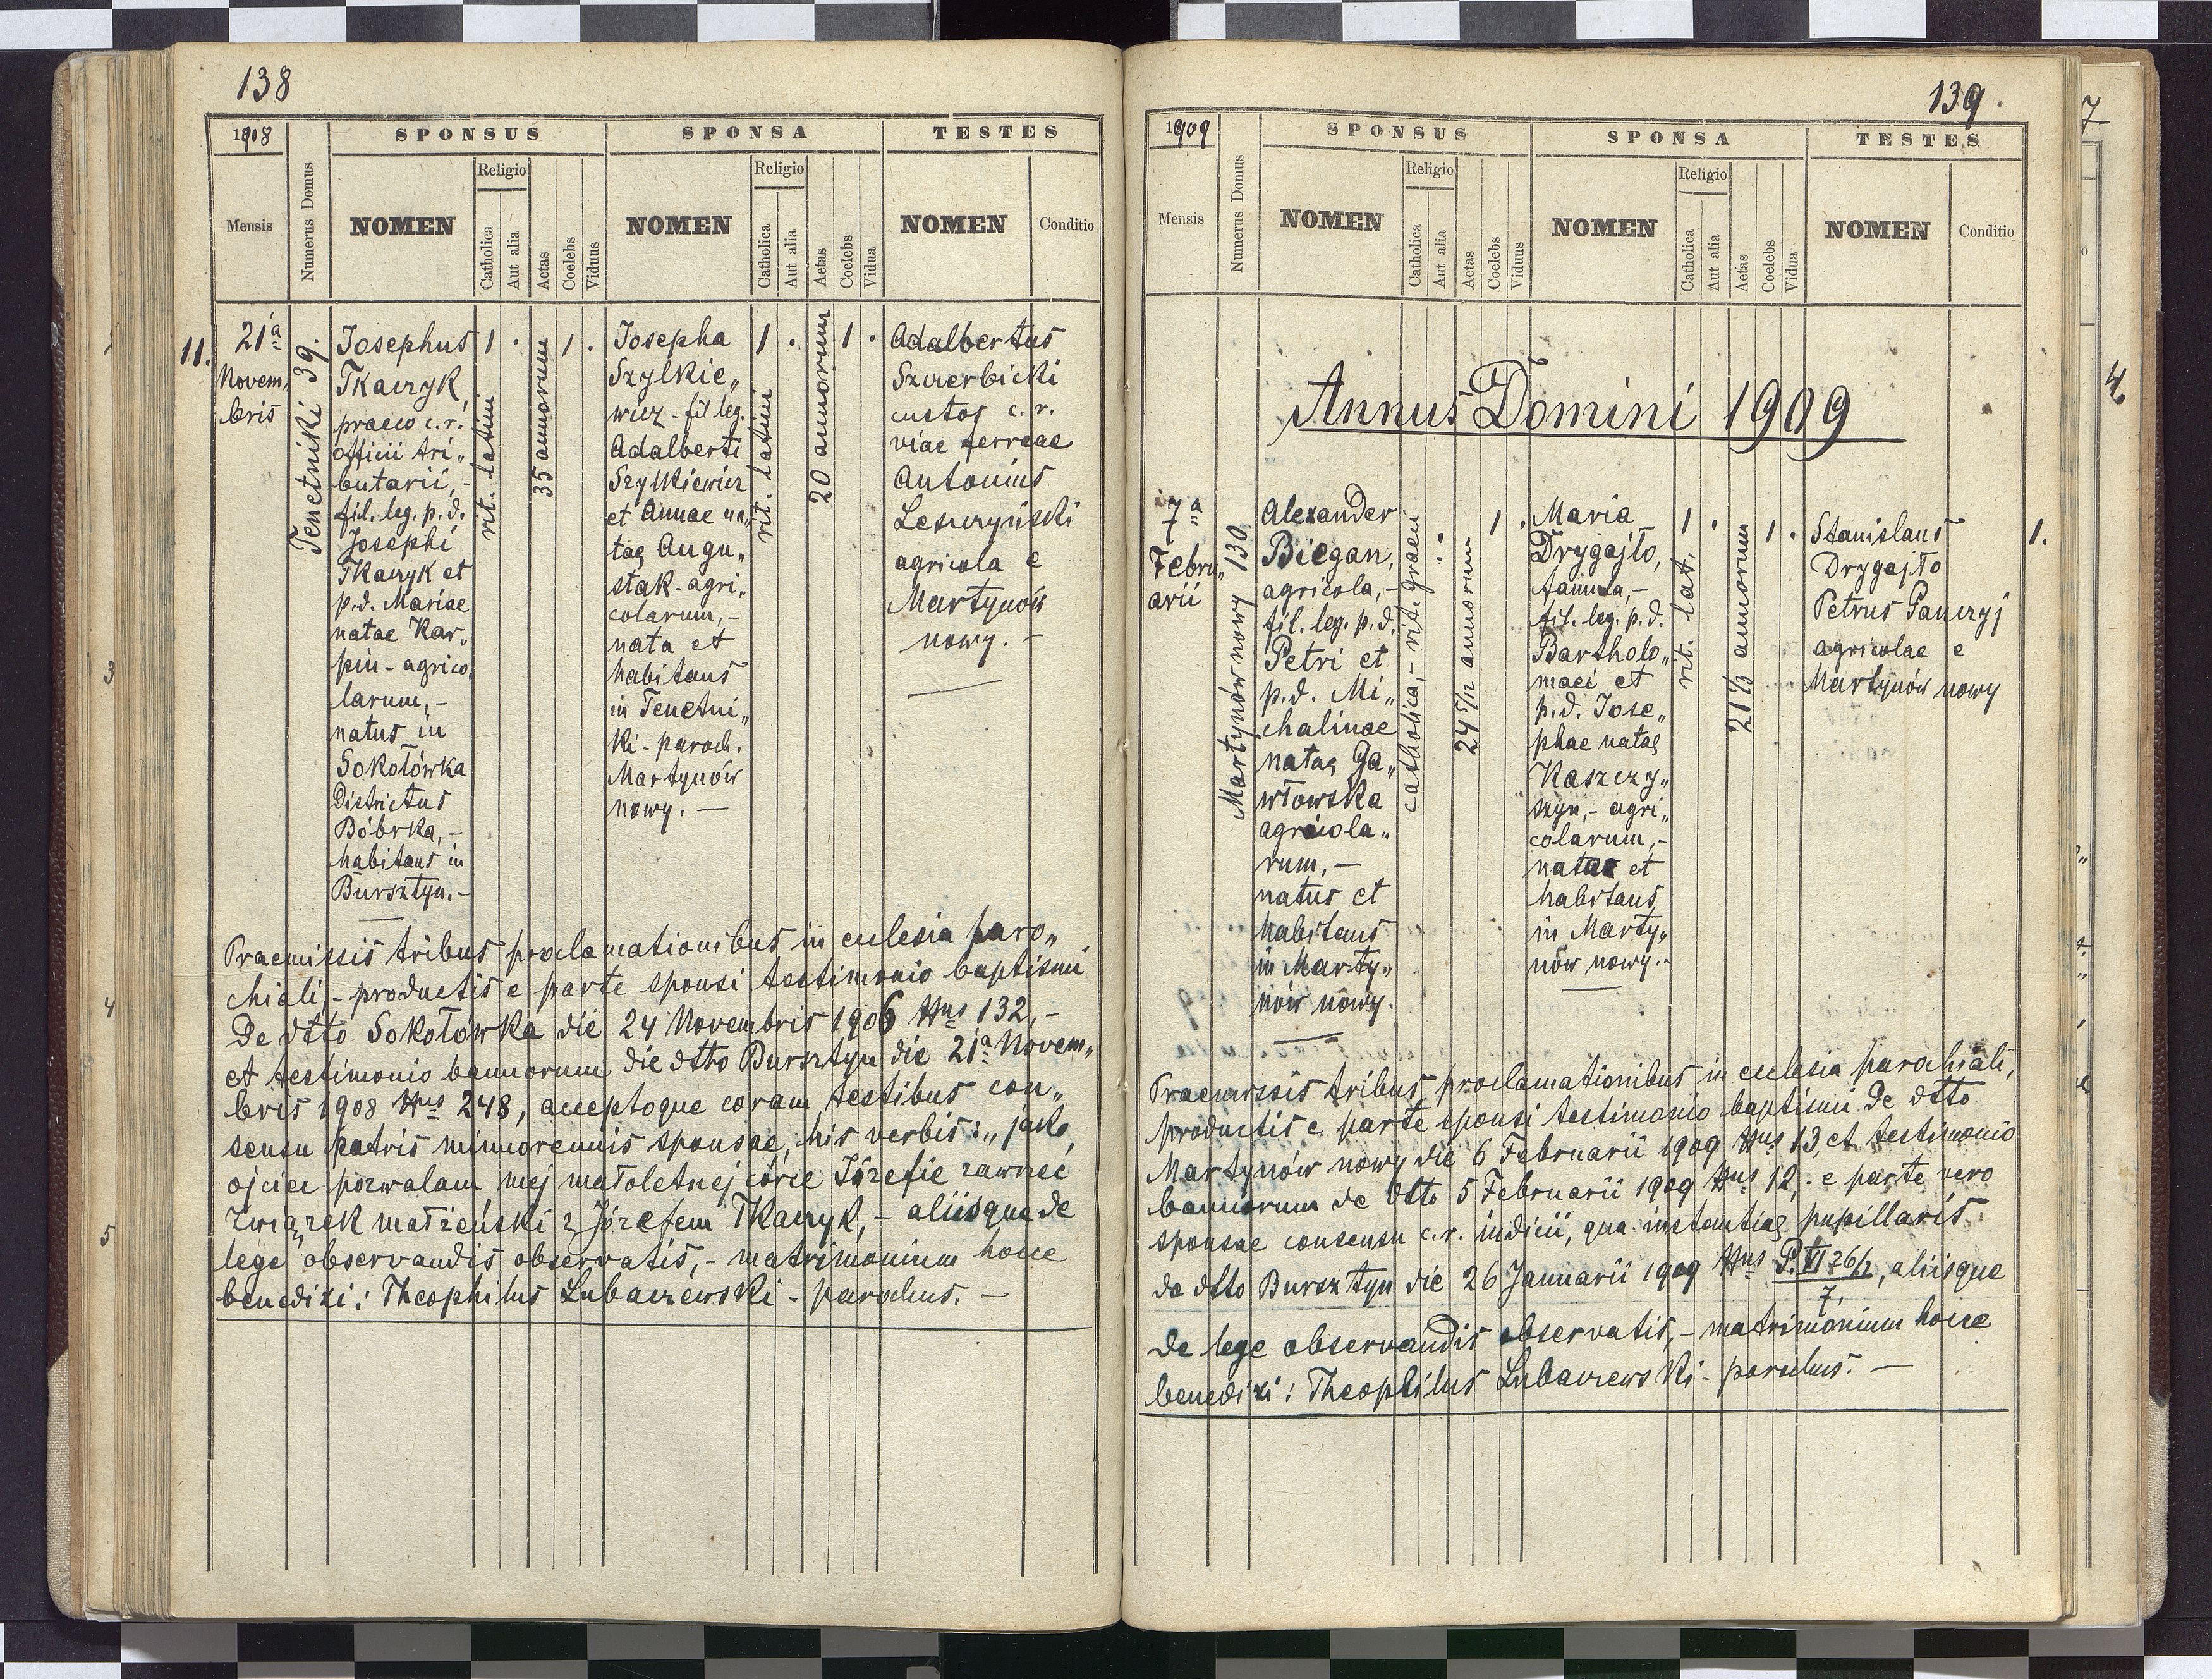 138
1908
SPONSUS
SPONSA
TESTES
Mensis
Numerus Domus
NOMEN
Religio
Catholica
Aut alia
Aetas
Coelebs
Viduus
NOMEN
Religio
Catholica
Aut alia
Aetas
Coelebs
Vidua
NOMEN
Conditio
11.
21a
Novem„
bris
Tenetniki 39.
Josephus
Tkaczyk,
praeco c.r.
officii tri„
butarii,-
fil. leg. p.d.
Josephi
Tkaczyk et
p.d. Mariae
natae Kar„
pin - agrico„
larum,-
natus in
Sokołówka
Districtus
Bóbrka,-
habitans in
Bursztyn.-
1 .
rit. latini
35 annorum
1 .
Josepha
Szylkie„
wicz - fil leg.
Adalberti
Szylkiewicz
et Annae na„
tae Augu„
stak - agri„
colarum,-
nata et
habitans
in Tenetni„
ki - paroch.
Martynów
nowy. -
1 .
rit. latini
20 annorum
1 .
Adalbertus
Szczerbicki
custos c. r.
viae ferreae
Antonius
Leszczyński
agricola e
Martynów
nowy. -
Praemissis tribus proclamationibus in eclesia paro„
chiali,- productis e parte sponsi testimonio baptismi
de dtto Sokołówka die 24 Novembris 1906 Nus 132,-
et testimonio bannorum die dtto Bursztyn die 21a Novem„
bris 1908 Nus 248, acceptoque coram testibus con„
sensu patris minorennis sponsae, his verbis: „jako
ojciec pozwalam mej małoletnej córce Józefie zawrzeć
związek małżeński z Józefem Tkaczyk,- aliisque de
lege observandis observatis,- matrimonium hocce
benedixi: Theophilus Lubaczewski - parochus. -
139.
1909
SPONSUS
SPONSA
TESTES
Mensis
Numerus Domus
NOMEN
Religio
Catholica
Aut alia
Aetas
Coelebs
Viduus
NOMEN
Religio
Catholica
Aut alia
Aetas
Coelebs
Vidua
NOMEN
Conditio
Annus Domini 1909
7a
Febru„
arii
Martynów nowy 130.
Alexander
Biegan,
agricola,-
fil. leg. p.d.
Petri et
p.d. Mi„
chalinae
natae Ga„
włowska
agricola„
rum,-
natus et
habitans
in Marty„
nów nowy.
catholica,- rit. graeci
24 5/12 annorum
1 .
Maria
Drygajło,
famula,-
fil. leg. p.d.
Bartholo„
maei et
p.d. Jose„
phae natae
Kaszczy„
szyn,- agri„
colarum,-
nata et
habitans
in Marty„
nów nowy.-
1 .
rit. lat.
21 1/3 annorum
1 .
Stanislaus
Drygajło
Petrus
agricolae e
Martynów nowy
1.
Praemissis tribus proclamationibus in eclesia parochiali,
productis e parte sponsi testimonio baptismi de dtto
Martynów nowy die 6 Februarii 1909 Nus 13, et testimonio
bannorum de dtto 5 Februarii 1909 Nus 12,- e parte vero
sponsae consensu c.r. iudicii, qua instantiae pupillaris
de dtto Bursztyn die 26 Januarii 1909 Nus P. VI 26/2, aliisque
7,
de lege observandis observatis,- matrimonium hocce
benedixi: Theophilus Lubaczewski - parochus. -